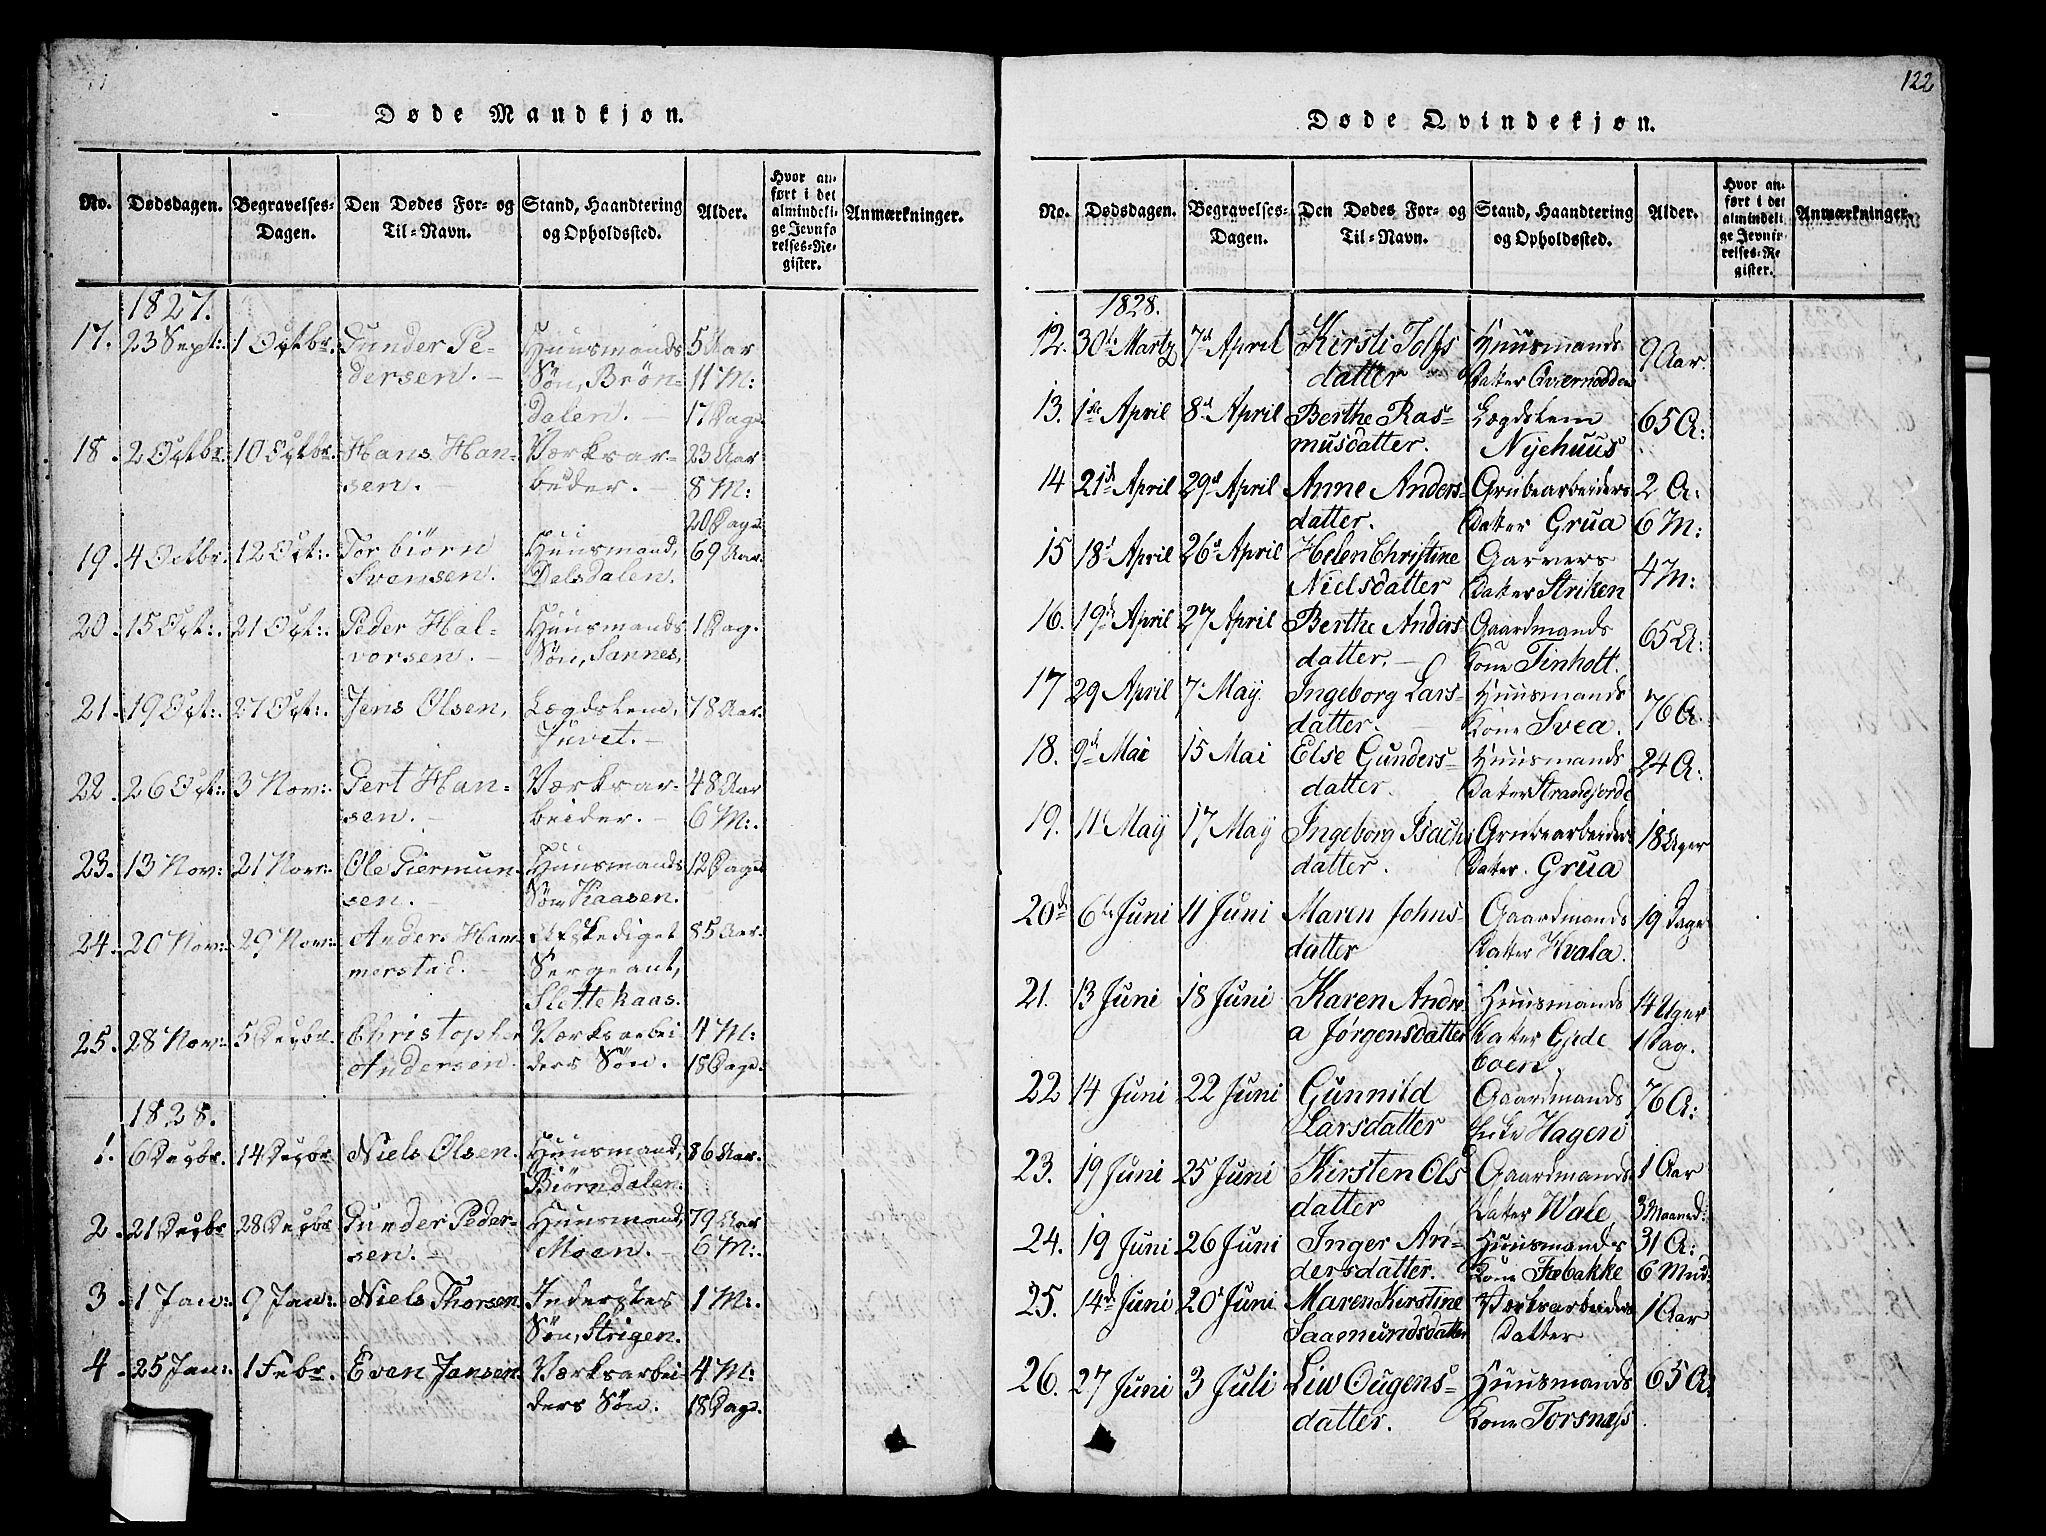 122
Døde Mandkjøn.
No. Dødsdagen. Begravelses-Dagen. Den Dødes For- og Til-Navn. Stand, Haandtering og Opholdssted. Alder. Hvor anført i det almindelige Jevnførelses-Register. Anmærkninger.
1827.
17. 23 Sept: 1 Octbr. Gunder Pe- Huusmands 5 Aar
dersen. Søn, Brøn- 11 M:
dalen. 17 Dage.
18. 2 Octbr. 10 Octbr. Hans Han- Værksar- 23 Aar
sen. beider. 8 M:
20 Dage.
19. 4 Octbr. 12 Oct: Torbiørn Huusmand, 69 Aar.
Svensen. Dalsdalen.
20. 15 Oct: 21 Oct: Peder Hal- Huusmands 1 Dag.
vorsen. Søn, Sannes.
21. 19 Oct: 27 Oct: Jens Olsen, Lægdslem, 78 Aar.
Juvet.
22. 26 Oct: 3 Nov: Gert Han- Værksar- 48 Aar
sen. beider. 6 M:
23. 13 Nov: 21 Nov: Ole Giermun- Huusmands 12 Dage
sen. Søn Kaasen.
24. 20 Nov: 29 Nov: Anders Ham- Afskediget 85 Aar.
merstad. Sergeant,
Slettekaas.
25. 28 Nov: 5 Decbr. Christopher Værksarbei- 4 M:
Andersen. ders Søn. 18 Dage.
1828.
1. 6 Decbr. 14 Decbr Niels Olsen. Huusmand, 86 Aar.
Biørndalen.
2. 21 Decbr 28 Decbr Gunder Peder- Huusmand, 79 Aar
sen. Moen. 6 M:
3. 1 Jan: 9 Jan: Niels Thorsen Inderstes 1 M:
Søn, Strigen.
4. 25 Jan: 1 Febr. Even Jansen Værksarbei- 4 M:
ders Søn. 18 Dage.
Døde Qvindekjøn.
No. Dødsdagen. Begravelses-Dagen. Den Dødes For- og Til-Navn. Stand, Haandtering og Opholdssted. Alder. Hvor anført i det almindelige Jevnførelses-Register. Anmærkninger.
1828.
12. 30te Martz 7de April Kirsti Tolfs Huusmands 9 Aar.
datter Datter Qviernodden
13. 1ste April 8de April Berthe Ras- Lægdslem 65 A:
musdatter. Nyehuus
14 21de April 29de April Anne Anders- Grubearbeiders 2 A:
datter. Datter Grua 6 M:
15 18de April 26de April Helen Christine Garvers 4 M:
Nielsdatter Datter Striken
16. 19de April 27 April Berthe Anders Gaardmands 65 A:
datter. Kone Tinholt.
17 29 April 7de May. Ingeborg Lars- Huusmands 76 A.
datter. Kone Svea.
18. 9de Mai 15 Mai Else Gunders- Huusmands 24 A:
datter. Datter Strandjorde
19. 11te May 17 May Ingeborg Isachs Grubearbeiders 18 Uger
datter. Datter. Grua
20de 6te Juni 11 Juni Maren Johns- Gaardmands 19 Dage
datter Datter Hvala.
21. 13 Juni 18 Juni Karen Andre Huusmands 14 Uger
a Jørgensdatter Datter Gjide 1 Dag.
boen
22 14 Juni 22 Juni Gunnild Gaardmands 76 A:
Larsdatter Enke Hagen
23. 19 Juni 25 Juni Kirsten Ols Gaardmands 1 Aar
datter Datter Wale 3 Maaned:
24. 19 Juni 26 Juni Inger An- Huusmands 31 A:
dersdatter. Kone Fæbakke 6 Mnd:
25. 14de Juni 20de Juni Maren Kirstine Værksarbeiders 1 Aar
Saamundsdatter Datter
26. 27 Juni 3 Juli Liw Ougens- Huusmands 65 A:
datter. Kone Torsnæss